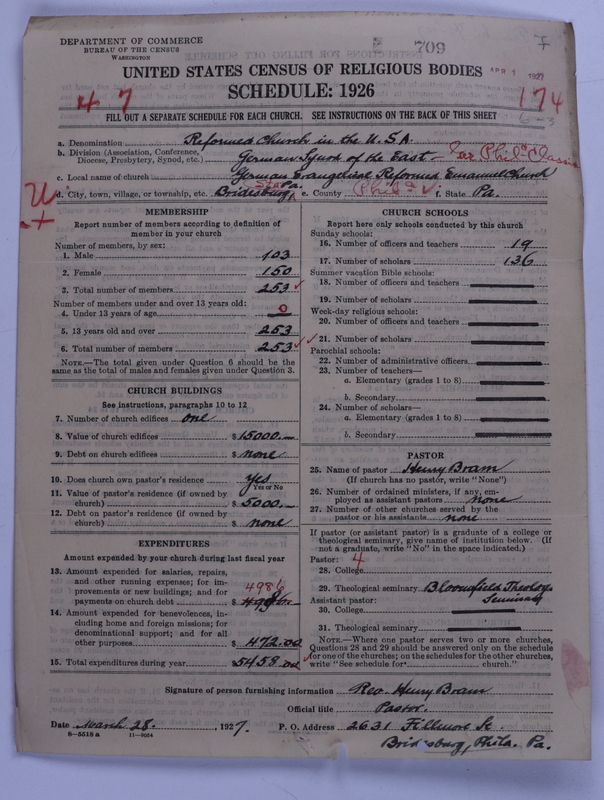 DEPARTMENT OF COMMERCE
BUREAU OF THE CENSUS
WASHINGTON
709
APR 1 1927
UNITED STATES CENSUS OF RELIGIOUS BODIES
SCHEDULE: 1926
4 7
174
6-3
FILL OUT A SEPARATE SCHEDULE FOR EACH CHURCH. SEE INSTRUCTIONS ON THE BACK OF THIS SHEET
a. Denomination Reformed Church in the U.S.A.
b. Division (Association, Conference, Diocese, Presbytery, Synod, etc.) German Synod of the East - See Phila Classis
c. Local name of church German Evangelical Reformed Emanuel Church
d. City, town, village, or township, etc. Bridesburg, Sta Pa. e. County Phila f. State Pa.
MEMBERSHIP
Report number of members according to definition of member in your church
Number of members, by sex:
1. Male 103
2. Female 150
3. Total number of members 253
Number of members under and over 13 years old:
4. Under 13 years of age 0
5. 13 years old and over 253
6. Total number of members 253
NOTE.—The total given under Question 6 should be the same as the total of males and females given under Question 3.
CHURCH BUILDINGS
See instructions, paragraphs 10 to 12
7. Number of church edifices one
8. Value of church edifices $ 15000.—
9. Debt on church edifices $ none
10. Does church own pastor's residence yes
Yes or No
11. Value of pastor's residence (if owned by church) $ 5000.—
12. Debt on pastor's residence (if owned by church) $ none
EXPENDITURES
Amount expended by your church during last fiscal year
13. Amount expended for salaries, repairs, and other running expenses; for improvements or new buildings; and for payments on church debt $ 4986
14. Amount expended for benevolences, including home and foreign missions; for denominational support; and for all other purposes $ 472.00
15. Total expenditures during year $ 5458.00
CHURCH SCHOOLS
Report here only schools conducted by this church
Sunday schools:
16. Number of officers and teachers 19
17. Number of scholars 136
Summer vacation Bible schools:
18. Number of officers and teachers
19. Number of scholars
Week-day religious schools:
20. Number of officers and teachers
21. Number of scholars
Parochial schools:
22. Number of administrative officers
23. Number of teachers—
a. Elementary (grades 1 to 8)
b. Secondary
24. Number of scholars—
a. Elementary (grades 1 to 8)
b. Secondary
PASTOR
25. Name of pastor Henry Bram
(If church has no pastor, write "None")
26. Number of ordained ministers, if any, employed as assistant pastors none
27. Number of other churches served by the pastor or his assistants none
If pastor (or assistant pastor) is a graduate of a college or theological seminary, give name of institution below. (If not a graduate, write "No" in the space indicated.)
Pastor: 4
28. College
29. Theological seminary Bloomfield Theology Seminary
Assistant pastor:
30. College
31. Theological seminary
NOTE.—Where one pastor serves two or more churches, Questions 28 and 29 should be answered only on the schedule for one of the churches; on the schedules for the other churches, write "See schedule for church."
Signature of person furnishing information Rev. Henry Bram
Official title Pastor.
Date March 28. 1927. P. O. Address 2631 Fillmore St.
8—5518 a 11—9034
Bridesburg, Phila. Pa.